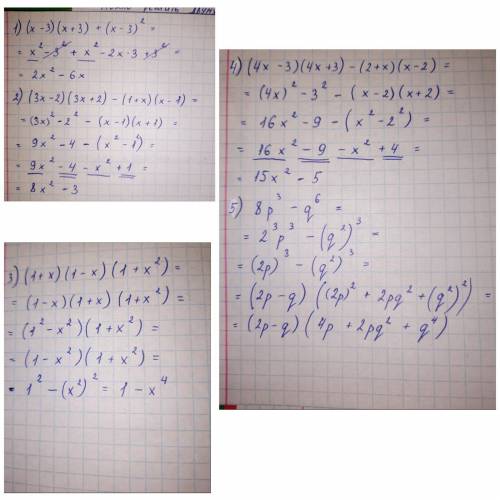 1) (x-3)(x+3) + (x-3)² =
= x² - 3² + x² - 2x·3 + 3² =
= 2x² - 6x
2) (3x-2)(3x+2) - (1+x)(x-1) =
= (3x)² - 2² - (x-1)(x+1) =
= 9x² - 4 - (x² - 1²) =
= 9x² - 4 - x² + 1 =
= 8x² - 3
3) (1+x)(1-x)(1+x²) =
= (1-x)(1+x)(1+x²) =
= (1² - x²)(1+x²) =
= (1 - x²)(1+x²) =
= 1² - (x²)² = 1 - x⁴
4) (4x-3)(4x+3) - (2+x)(x-2) =
= (4x)² - 3² - (x-2)(x+2) =
= 16x² - 9 - (x² - 2²) =
= 16x² - 9 - x² + 4 =
= 15x² - 5
5) 8p³ - q⁶ =
= 2³p³ - (q²)³ =
= (2p)³ - (q²)³ =
= (2p - q)((2p)² + 2pq² + (q²)²) =
= (2p - q)(4p + 2pq² + q⁴)